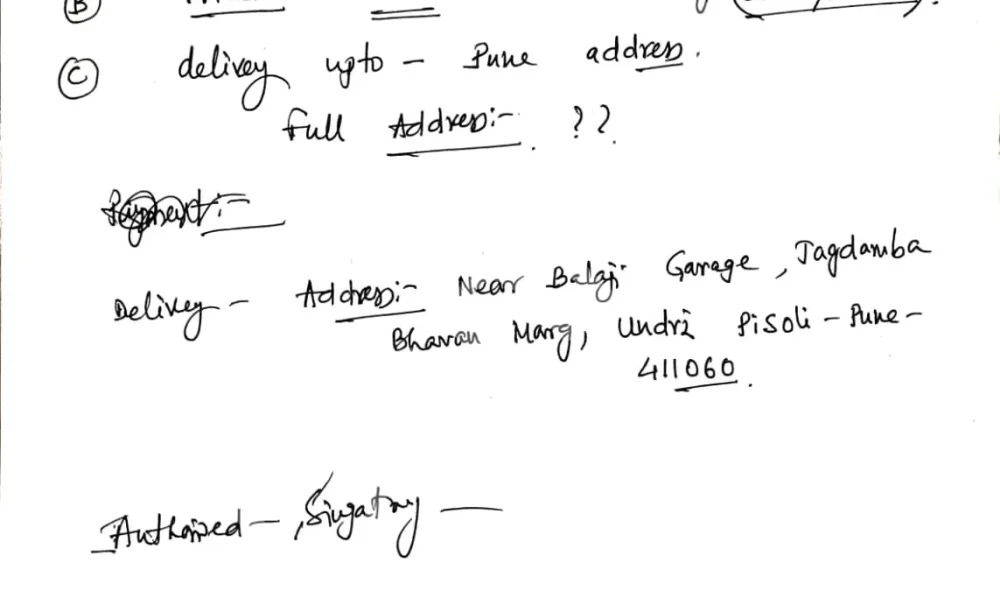 (B)
(C) delivey upto - Pune address.
Full Address:- ??
Payment:-
Delivey - Address:- Near Balaji Garage, Jagdamba
Bhavan Marg, Undri Pisoli - Pune -
411060.
Authorised - Singatry -